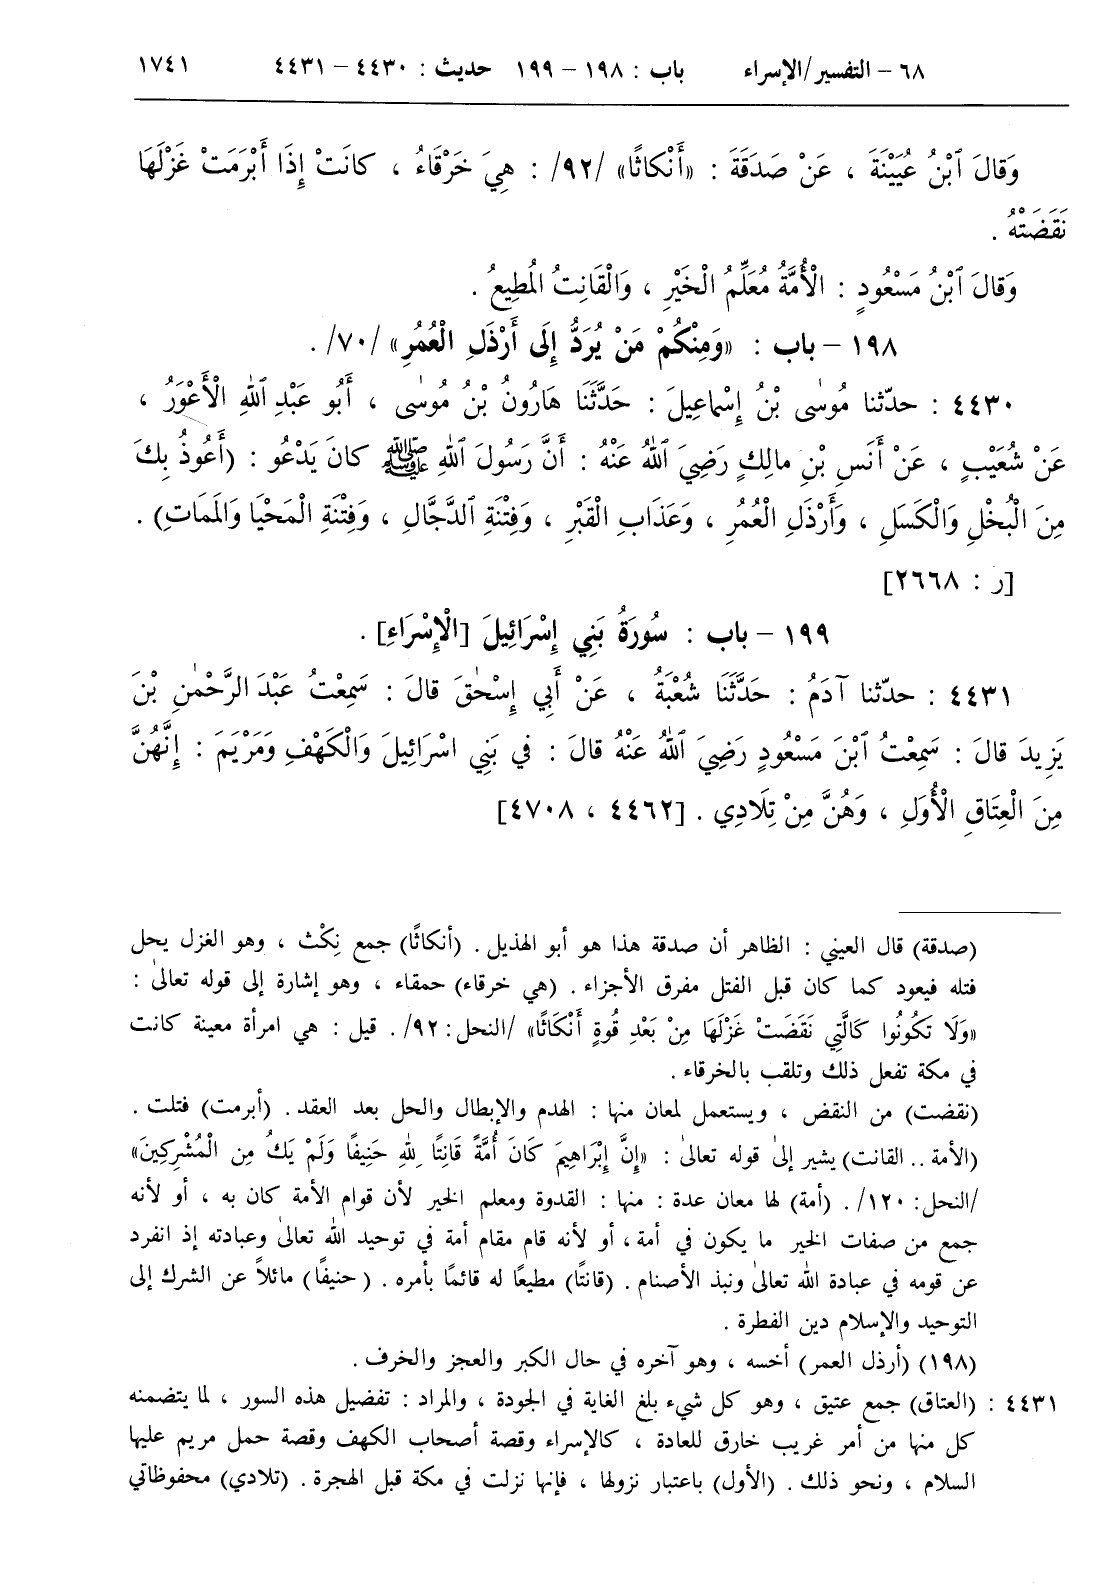 ٦٨ – التفسير/الإسراء باب : ١٩٨ – ١٩٩ حديث : ٤٤٣٠ – ٤٤٣١ ١٧٤١
وَقالَ ٱبْنُ عُيَيْنَةَ ، عَنْ صَدَقَةَ : «أَنْكاثًا» /٩٢/ : هِيَ خَرْقَاءُ ، كانَتْ إِذَا أَبْرَمَتْ غَزْلَهَا
نَقَضَتْهُ .
وَقالَ ٱبْنُ مَسْعُودٍ : الْأُمَّةُ مُعَلِّمُ الْخَيْرِ ، وَالْقَانِتُ الْمُطِيعُ .
١٩٨ – باب : «وَمِنْكُمْ مَنْ يُرَدُّ إِلَى أَرْذَلِ الْعُمُرِ» /٧٠/ .
٤٤٣٠ : حدّثنا مُوسٰى بْنُ إِسْماعِيلَ : حَدَّثَنَا هَارُونُ بْنُ مُوسٰى ، أَبُو عَبْدِ ٱللهِ الْأَعْوَرُ ،
عَنْ شُعَيْبٍ ، عَنْ أَنَسِ بْنِ مالِكٍ رَضِيَ ٱللهُ عَنْهُ : أَنَّ رَسُولَ ٱللهِ ﷺ كانَ يَدْعُو : (أَعُوذُ بِكَ
مِنَ الْبُخْلِ وَالْكَسَلِ ، وَأَرْذَلِ الْعُمُرِ ، وَعَذَابِ الْقَبْرِ ، وَفِتْنَةِ ٱلدَّجَّالِ ، وَفِتْنَةِ الْمَحْيَا وَالْمَمَاتِ) .
[ر : ٢٦٦٨]
١٩٩ – باب : سُورَةُ بَنِي إِسْرَائِيلَ [الْإِسْرَاءِ] .
٤٤٣١ : حدّثنا آدَمُ : حَدَّثَنَا شُعْبَةُ ، عَنْ أَبِي إِسْحٰقَ قالَ : سَمِعْتُ عَبْدَ الرَّحْمٰنِ بْنَ
يَزِيدَ قالَ : سَمِعْتُ ٱبْنَ مَسْعُودٍ رَضِيَ ٱللهُ عَنْهُ قالَ : في بَنِي اسْرَائِيلَ وَالْكَهْفِ وَمَرْيَمَ : إِنَّهُنَّ
مِنَ الْعِتَاقِ الْأُوَلِ ، وَهُنَّ مِنْ تِلَادِي . [٤٤٦٢ ، ٤٧٠٨]
(صدقة) قال العيني : الظاهر أن صدقة هذا هو أبو الهذيل . (أنكاثًا) جمع نِكْث ، وهو الغزل يحل
فتله فيعود كما كان قبل الفتل مفرق الأجزاء . (هي خرقاء) حمقاء ، وهو إشارة إلى قوله تعالىٰ :
«وَلَا تَكُونُوا كَالَّتِي نَقَضَتْ غَزْلَهَا مِنْ بَعْدِ قُوةٍ أَنْكَاثًا» /النحل: ٩٢/ . قيل : هي امرأة معينة كانت
في مكة تفعل ذلك وتلقب بالخرقاء .
(نقضت) من النقض ، ويستعمل لمعان منها : الهدم والإبطال والحل بعد العقد . (أبرمت) فتلت .
(الأمة .. القانت) يشير إلىٰ قوله تعالىٰ : «إِنَّ إِبْرَاهِيمَ كَانَ أُمَّةً قَانِتًا لِلهِ حَنِيفًا وَلَمْ يَكُ مِن الْمُشْرِكِينَ»
/النحل: ١٢٠/ . (أمة) لها معان عدة : منها : القدوة ومعلم الخير لأن قوام الأمة كان به ، أو لأنه
جمع من صفات الخير ما يكون في أمة ، أو لأنه قام مقام أمة في توحيد الله تعالىٰ وعبادته إذ انفرد
عن قومه في عبادة الله تعالىٰ ونبذ الأصنام . (قانتًا) مطيعًا له قائمًا بأمره . (حنيفًا) مائلاً عن الشرك إلى
التوحيد والإسلام دين الفطرة .
(١٩٨) (أرذل العمر) أخسه ، وهو آخره في حال الكبر والعجز والخرف .
٤٤٣١ : (العتاق) جمع عتيق ، وهو كل شيء بلغ الغاية في الجودة ، والمراد : تفضيل هذه السور ، لما يتضمنه
كل منها من أمر غريب خارق للعادة ، كالإسراء وقصة أصحاب الكهف وقصة حمل مريم عليها
السلام ، ونحو ذلك . (الأول) باعتبار نزولها ، فإنها نزلت في مكة قبل الهجرة . (تلادي) محفوظاتي